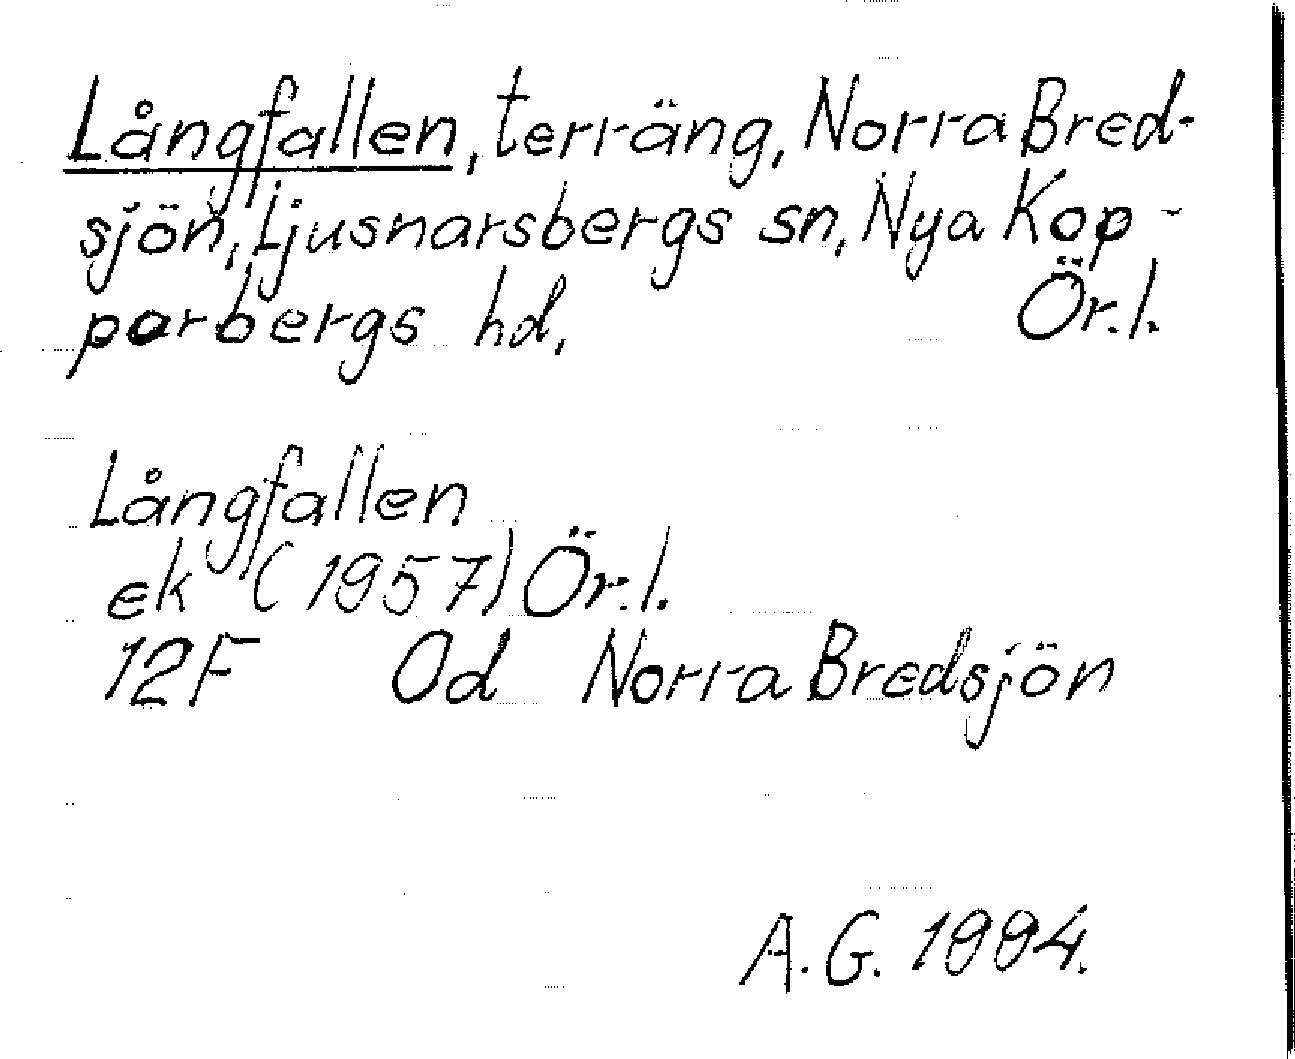 Långfallen, terräng, Norra Bred-
sjön, Ljusnarsbergs sn, Nya Kop-
parbergs hd, Ör. l.
Långfallen
ek (1957) Ör. l.
12F 0d Norra Bredsjön
A.G. 1994.